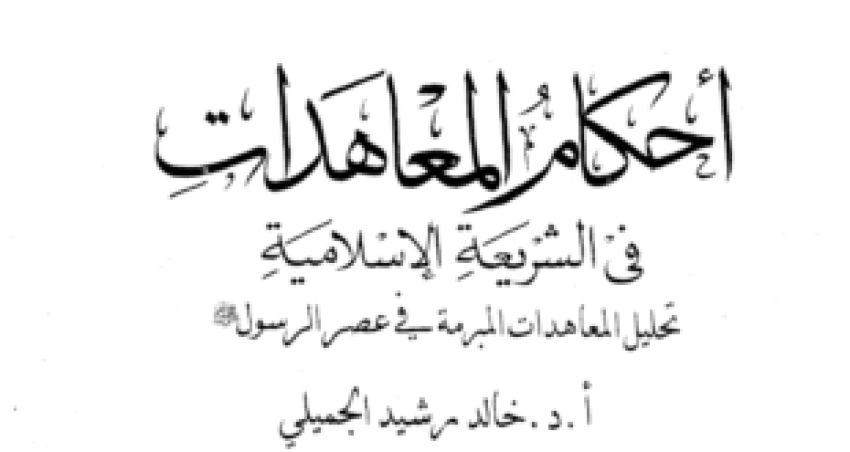 أَحكامُ المعْاهَداتِ
في الشرْيعَةِ الإسْلاميَةِ
تحليل المعاهدات المبرمة في عصر الرسول ﷺ
أ.د. خالد رشيد الجميلي